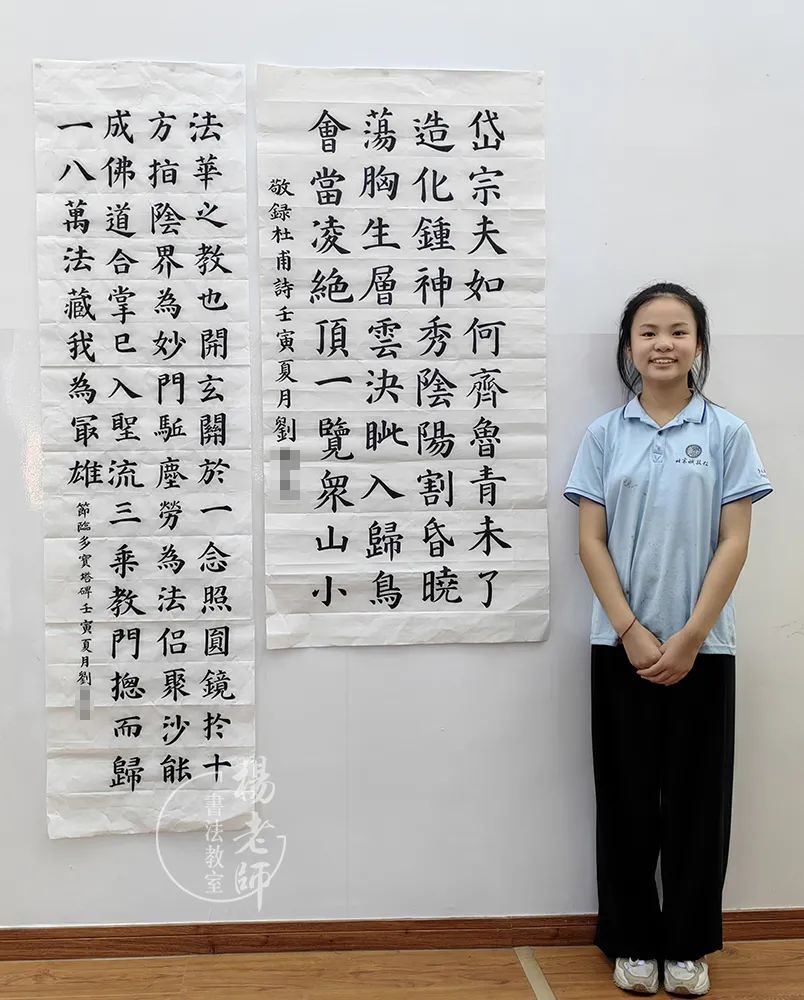 岱宗夫如何齊魯青未了
造化鍾神秀陰陽割昏曉
蕩胸生層雲決眦入歸鳥
會當凌絕頂一覽衆山小
敬録杜甫詩壬寅夏月劉
法華之教也開玄關於一念照圓鏡於十
方指陰界為妙門駈塵勞為法侶聚沙能
成佛道合掌已入聖流三乘教門揔而歸
一八萬法藏我為冣雄
節臨多寶塔碑壬寅夏月劉
楊老師
書法教室